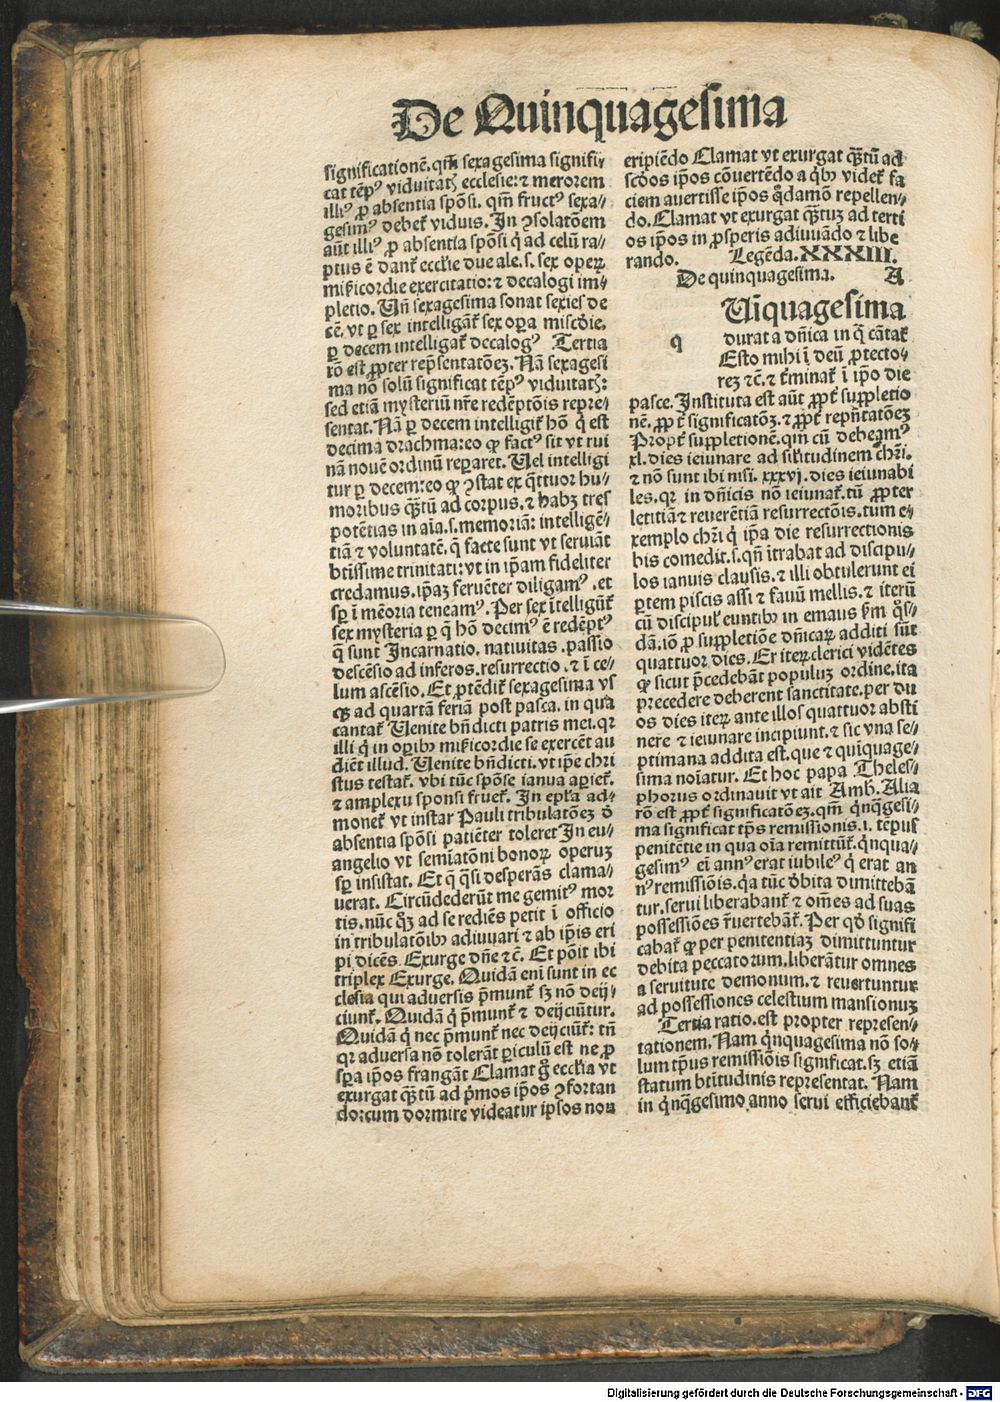 De Quinquagesima
significationē. qm̄ sexagesima signifi/
cat tēpꝰ viduitatꝭ ecclesie: ⁊ merorem
illiꝰ ꝓ absentia spōsi. qm̄ fructꝰ sexa/
gesimꝰ debet᷑ viduis. In ꝯsolatōem
aūt illiꝰ ꝓ absentia spōsi q̇ ad celū ra/
ptus ē dant᷑ ecclīe due ale. s. sex operꝝ
mīẜicordie exercitatio: ⁊ decalogi im/
pletio. Uñ sexagesima sonat sexies de
cē. vt ꝑ sex intelligāt᷑ sex oꝑa mīscđie.
ꝑ decem intelligat᷑ decalogꝰ Tertia
rō est ꝓpter rep̄sentatōeꝫ. Nā sexagesi
ma nō solū significat tēpꝰ viduitatꝭ:
sed etiā mysteriū nr̄e redēptōis repre/
sentat. Nā ꝑ decem intelligit᷑ hō q̇ est
decima drachma: eo ꝙ factꝰ sit vt rui
nā nouē ordinū reꝑaret. Uel intelligi
tur ꝑ decem: eo ꝙ ꝯstat ex q̄ttuor hu/
moribus qȝtū ad corpus. ⁊ habꝫ tres
potētias in aīa. s. memoriā: intelligē/
tiā ⁊ voluntatē. q̄ facte sunt vt seruiāt
btīssime trinitati: vt in ip̄am fideliter
credamus. ip̄aꝫ feruēter diligamꝰ. et
sꝑ ī mēoria teneamꝰ. Per sex ītelligūt᷑
sex mysteria ꝑ q̄ hō decimꝰ ē redēptꝰ
q̄ sunt Incarnatio. natiuitas. passio
descēsio ad inferos. resurrectio. ⁊ ī ce/
lum ascēsio. Et ꝓtēdit᷑ sexagesima vs
qȝ ad quartā feriā post pasca. in qua
cantat᷑ Uenite bn̄dicti patris mei. qꝛ
illi q̇ in oꝑibꝰ mīẜicordie se exercēt au
diēt illud. Uenite bn̄dicti. vt ip̄e chri
stus testat᷑. vbi tūc spōse ianua aꝑiet᷑.
⁊ amplexu sponsi fruet᷑. In ep̄la ad/
monet᷑ vt instar Pauli tribulatōeꝫ đ
absentia spōsi patiēter toleret In eu/
angelio vt semīatōni bonoꝝ operuꝫ
sꝑ insistat. Et q̄ q̄si desperās clama/
uerat. Circūdederūt me gemitꝰ mor
tis. nūc qȝ ad se rediēs petit ī officio
in tribulatōibꝰ adiuuari ⁊ ab ip̄is eri
pi dicēs Exurge dn̄e ⁊c̄. Et pōit ibi
triplex Exurge. Quidā eni sunt in ec
clesia qui aduersis p̄munt᷑ sꝫ nō deij/
ciunt᷑. Quidā q̇ p̄munt᷑ ⁊ deijciūtur.
Quidā q̇ nec p̄munt᷑ nec deijciūt᷑: tn̄
qꝛ aduersa nō tolerāt ꝑiculū est ne ꝓ
sꝑa ip̄os frangāt Clamat g̊ ecclīa vt
exurgat qȝtū ad p̄mos ip̄os ꝯfortan
do: cum dormire videatur ip̄sos non
eripiēdo Clamat vt exurgat qȝtū ad
scđos ip̄os cōuertēdo a q̇bꝰ videt᷑ fa
ciem auertisse ip̄os q̇damō repellen/
do. Clamat vt exurgat qȝtuꝫ ad terti
os ip̄os in ꝓsperis adiuuādo ⁊ libe
rando. Legēda. XXXIII.
De quinquagesima. A
q
Uīquagesima
durat a dn̄ica in q̄ cātat᷑
Esto mihi ī deū ꝓtecto/
reꝫ ⁊c̄. ⁊ t᷑minat᷑ ī ip̄o die
pasce. Instituta est aūt ꝓpt᷑ suppletio
nē. ꝓpt᷑ significatōꝫ. ⁊ ꝓpt᷑ repn̄tatōeꝫ
Propt᷑ suppletionē. qm̄ cū debeamꝰ
xl. dies ieiunare ad siĺitudinem chr̄i.
⁊ nō sunt ibi nisi. xxxvj. dies ieiunabi
les. qꝛ in dn̄icis nō ieiunat᷑. tū ꝓpter
letitiā ⁊ reuerētiā resurrectōis. tum e/
xemplo chr̄i q̇ ip̄a die resurrectionis
bis comedit. s. qn̄ ītrabat ad discipu/
los ianuis clausis. ⁊ illi obtulerunt ei
ꝑtem piscis assi ⁊ fauū mellis. ⁊ iterū
cū discipuĺ euntibꝰ in emaus ẜm q̊s/
dā. iō ꝓ suppletiōe dn̄icaꝝ additi sūt
quattuor dies. Er iteꝝ clerici vidētes
ꝙ sicut p̄cedebāt populuꝫ ordine. ita
precedere deberent sanctitate. per du
os dies iteꝝ ante illos quattuor absti
nere ⁊ ieiunare incipiunt. ⁊ sic vna se/
ptimana addita est. que ⁊ quīquage/
sima noīatur. Et hoc papa Theles/
phorus ordinauit vt ait Amb̄. Alia
rō est ꝓpt᷑ significatōeꝫ. qm̄ q̇nq̄gesi/
ma significat tp̄s remissionis. i. tēpus
penitētie in qua oīa remittūt᷑. q̇nqua/
gesimꝰ ei annꝰ erat iubileꝰ q̇ erat an
nꝰ remissiōis. q̇a tūc đbita dimittebā
tur. serui liberabant᷑ ⁊ om̄es ad suas
possessiōes r̄uertebāt᷑. Per qđ signifi
cabat᷑ ꝙ per penitentiaꝫ dimittuntur
debita peccatorum. liberātur omnes
a seruitute demonum. ⁊ reuertuntur
ad possessiones celestium mansionuꝫ
Tertia ratio. est propter represen/
tationem. Nam q̇nquagesima nō so/
lum tp̄us remissiōis significat. sꝫ etiā
statum btītudinis representat. Nam
in q̇nq̄gesimo anno serui efficiebant᷑
Digitalisierung gefördert durch die Deutsche Forschungsgemeinschaft - DFG